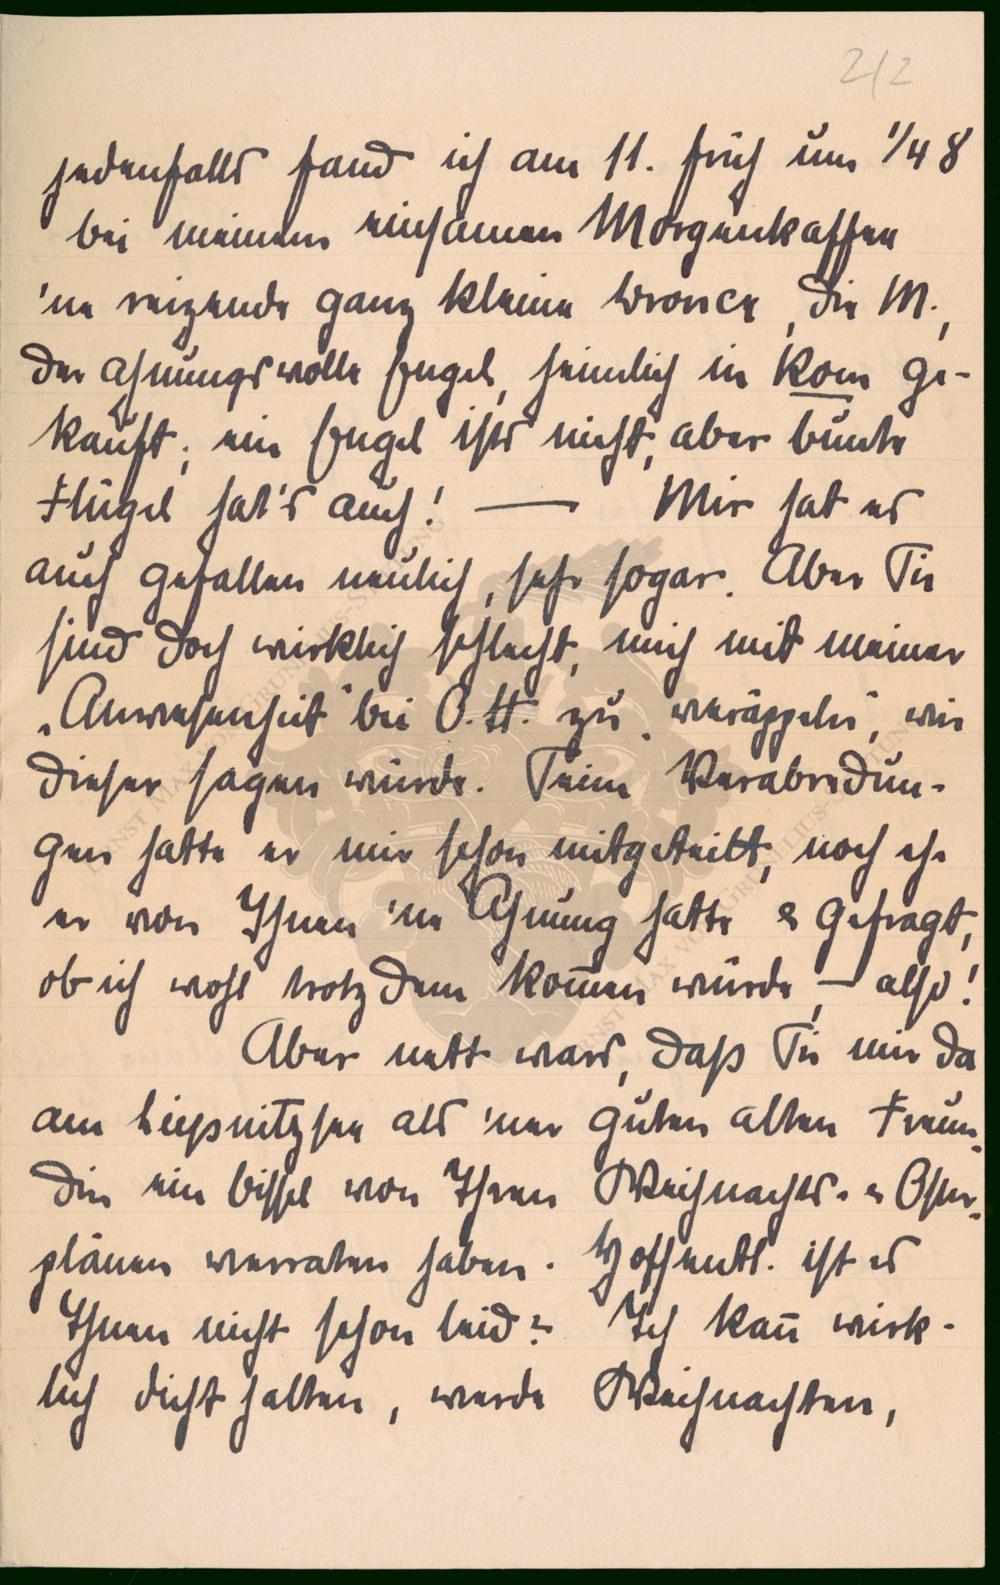 2/2
jedenfalls fand ich am 11. früh um 1/4 8
bei meinem einsamen Morgenkaffee
'ne reizende ganz kleine bronce, die M.,
der ahnungsvolle Engel, heimlich in Rom ge-
kauft; ein Engel ists nicht, aber bunte
Flügel hat's auch! — Mir hat es
auch gefallen neulich, sehr sogar. Aber Sie
sind doch wirklich schlecht, mich mit meiner
„Anwesenheit" bei O. H. zu „veräppeln", wie
dieser sagen würde. Seine Verabredun-
gen hatte er mir schon mitgeteilt, noch ehe
er von Ihnen 'ne Ahnung hatte & gefragt,
ob ich wohl trotzdem kom̄en würde, — also!
Aber nett wars, daß Sie mir da
am Liepnitzsee als 'ner guten alten Freun-
din ein bissel von Ihren Weihnachts- & Oster-
plänen verraten haben. Hoffentl. ist es
Ihnen nicht schon leid? Ich kan̄ wirk-
lich dicht halten, werde Weihnachten,
ERNST MAX VON GRUNELIUS-STIFTUNG